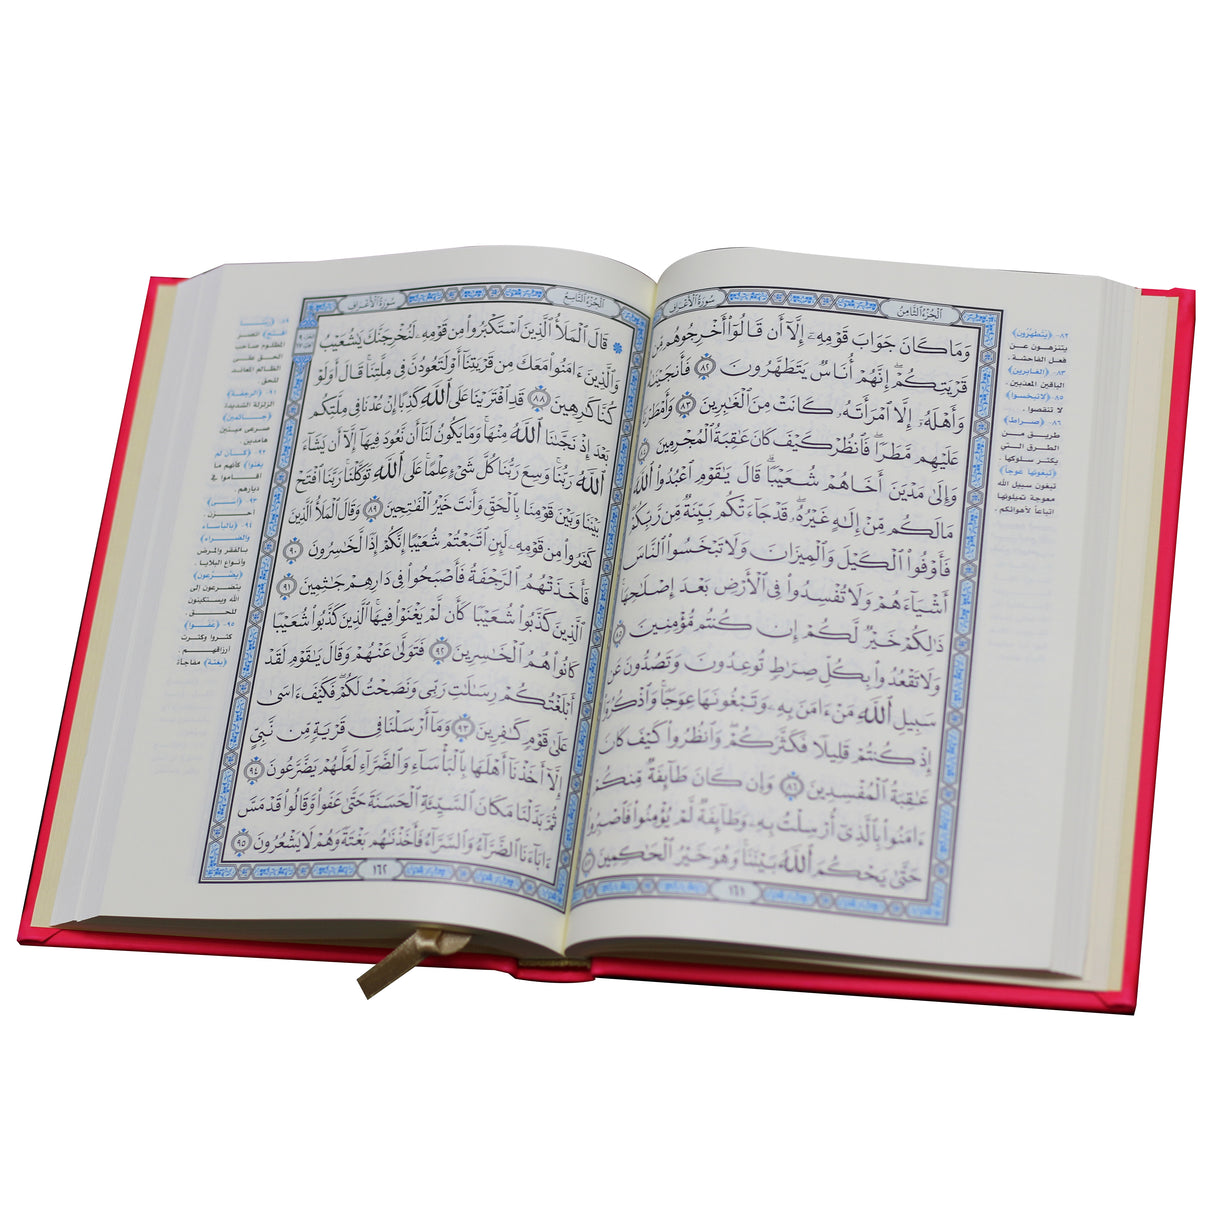 سورة الأعراف
الجزء الثامن
وَمَا كَانَ جَوَابَ قَوْمِهِۦٓ إِلَّآ أَن قَالُوٓا۟ أَخْرِجُوهُم مِّن
قَرْيَتِكُمْ ۖ إِنَّهُمْ أُنَاسٌ يَتَطَهَّرُونَ ٨٢ فَأَنجَيْنَـٰهُ
وَأَهْلَهُۥٓ إِلَّا ٱمْرَأَتَهُۥ كَانَتْ مِنَ ٱلْغَـٰبِرِينَ ٨٣ وَأَمْطَرْنَا
عَلَيْهِم مَّطَرًا ۖ فَٱنظُرْ كَيْفَ كَانَ عَـٰقِبَةُ ٱلْمُجْرِمِينَ ٨٤
وَإِلَىٰ مَدْيَنَ أَخَاهُمْ شُعَيْبًا ۗ قَالَ يَـٰقَوْمِ ٱعْبُدُوا۟ ٱللَّهَ
مَا لَكُم مِّنْ إِلَـٰهٍ غَيْرُهُۥ ۖ قَدْ جَآءَتْكُم بَيِّنَةٌ مِّن رَّبِّكُمْ ۖ
فَأَوْفُوا۟ ٱلْكَيْلَ وَٱلْمِيزَانَ وَلَا تَبْخَسُوا۟ ٱلنَّاسَ
أَشْيَآءَهُمْ وَلَا تُفْسِدُوا۟ فِى ٱلْأَرْضِ بَعْدَ إِصْلَـٰحِهَا ۚ
ذَٰلِكُمْ خَيْرٌ لَّكُمْ إِن كُنتُم مُّؤْمِنِينَ ٨٥
وَلَا تَقْعُدُوا۟ بِكُلِّ صِرَٰطٍ تُوعِدُونَ وَتَصُدُّونَ عَن
سَبِيلِ ٱللَّهِ مَنْ ءَامَنَ بِهِۦ وَتَبْغُونَهَا عِوَجًا ۚ وَٱذْكُرُوٓا۟
إِذْ كُنتُمْ قَلِيلًا فَكَثَّرَكُمْ ۖ وَٱنظُرُوا۟ كَيْفَ كَانَ
عَـٰقِبَةُ ٱلْمُفْسِدِينَ ٨٦ وَإِن كَانَ طَآئِفَةٌ مِّنكُمْ
ءَامَنُوا۟ بِٱلَّذِىٓ أُرْسِلْتُ بِهِۦ وَطَآئِفَةٌ لَّمْ يُؤْمِنُوا۟ فَٱصْبِرُوا۟
حَتَّىٰ يَحْكُمَ ٱللَّهُ بَيْنَنَا ۚ وَهُوَ خَيْرُ ٱلْحَـٰكِمِينَ ٨٧
١٦١
٨٢- (يتطهرون)
يتنزهون عن
فعل الفاحشة.
٨٣- (الغابرين)
الباقين المعذبين.
٨٥- (لاتبخسوا)
لا تنقصوا.
٨٦- (صراط)
طريق من
الطرق التي
يكثر سلوكها.
(تبغونها عوجاً)
تبغون سبيل الله
معوجة تميلونها
اتباعاً لأهوائكم.
الجزء التاسع
سورة الأعراف
قَالَ ٱلْمَلَأُ ٱلَّذِينَ ٱسْتَكْبَرُوا۟ مِن قَوْمِهِۦ لَنُخْرِجَنَّكَ يَـٰشُعَيْبُ
وَٱلَّذِينَ ءَامَنُوا۟ مَعَكَ مِن قَرْيَتِنَآ أَوْ لَتَعُودُنَّ فِى مِلَّتِنَا ۚ قَالَ أَوَلَوْ
كُنَّا كَـٰرِهِينَ ٨٨ قَدِ ٱفْتَرَيْنَا عَلَى ٱللَّهِ كَذِبًا إِنْ عُدْنَا فِى مِلَّتِكُم
بَعْدَ إِذْ نَجَّىٰنَا ٱللَّهُ مِنْهَا ۚ وَمَا يَكُونُ لَنَآ أَن نَّعُودَ فِيهَآ إِلَّآ أَن يَشَآءَ
ٱللَّهُ رَبُّنَا ۚ وَسِعَ رَبُّنَا كُلَّ شَىْءٍ عِلْمًا ۚ عَلَى ٱللَّهِ تَوَكَّلْنَا ۚ رَبَّنَا ٱفْتَحْ
بَيْنَنَا وَبَيْنَ قَوْمِنَا بِٱلْحَقِّ وَأَنتَ خَيْرُ ٱلْفَـٰتِحِينَ ٨٩ وَقَالَ ٱلْمَلَأُ ٱلَّذِينَ
كَفَرُوا۟ مِن قَوْمِهِۦ لَئِنِ ٱتَّبَعْتُمْ شُعَيْبًا إِنَّكُمْ إِذًا لَّخَـٰسِرُونَ ٩٠
فَأَخَذَتْهُمُ ٱلرَّجْفَةُ فَأَصْبَحُوا۟ فِى دَارِهِمْ جَـٰثِمِينَ ٩١
ٱلَّذِينَ كَذَّبُوا۟ شُعَيْبًا كَأَن لَّمْ يَغْنَوْا۟ فِيهَا ۚ ٱلَّذِينَ كَذَّبُوا۟ شُعَيْبًا
كَانُوا۟ هُمُ ٱلْخَـٰسِرِينَ ٩٢ فَتَوَلَّىٰ عَنْهُمْ وَقَالَ يَـٰقَوْمِ لَقَدْ
أَبْلَغْتُكُمْ رِسَـٰلَـٰتِ رَبِّى وَنَصَحْتُ لَكُمْ ۖ فَكَيْفَ ءَاسَىٰ
عَلَىٰ قَوْمٍ كَـٰفِرِينَ ٩٣ وَمَآ أَرْسَلْنَا فِى قَرْيَةٍ مِّن نَّبِىٍّ
إِلَّآ أَخَذْنَآ أَهْلَهَا بِٱلْبَأْسَآءِ وَٱلضَّرَّآءِ لَعَلَّهُمْ يَضَّرَّعُونَ ٩٤
ثُمَّ بَدَّلْنَا مَكَانَ ٱلسَّيِّئَةِ ٱلْحَسَنَةَ حَتَّىٰ عَفَوا۟ وَّقَالُوا۟ قَدْ مَسَّ
ءَابَآءَنَا ٱلضَّرَّآءُ وَٱلسَّرَّآءُ فَأَخَذْنَـٰهُم بَغْتَةً وَهُمْ لَا يَشْعُرُونَ ٩٥
١٦٢
المظلوم صاحب
الحق على
الظالم المعاند
للحق.
٩١- (الرجفة)
الزلزلة الشديدة
(جاثمين)
صرعى ميتين
هامدين.
٩٢- (كأن لم
يغنوا) كأنهم ما
أقاموا في
ديارهم.
٩٣- (آسى)
أحزن.
٩٤- (بالبأساء
والضراء)
بالفقر والمرض
وأنواع البلايا.
(يضرعون)
يتضرعون إلى
الله ويستكينون
للحق.
٩٥- (عفوا)
كثروا وكثرت
أرزاقهم.
(بغتة) مفاجأة